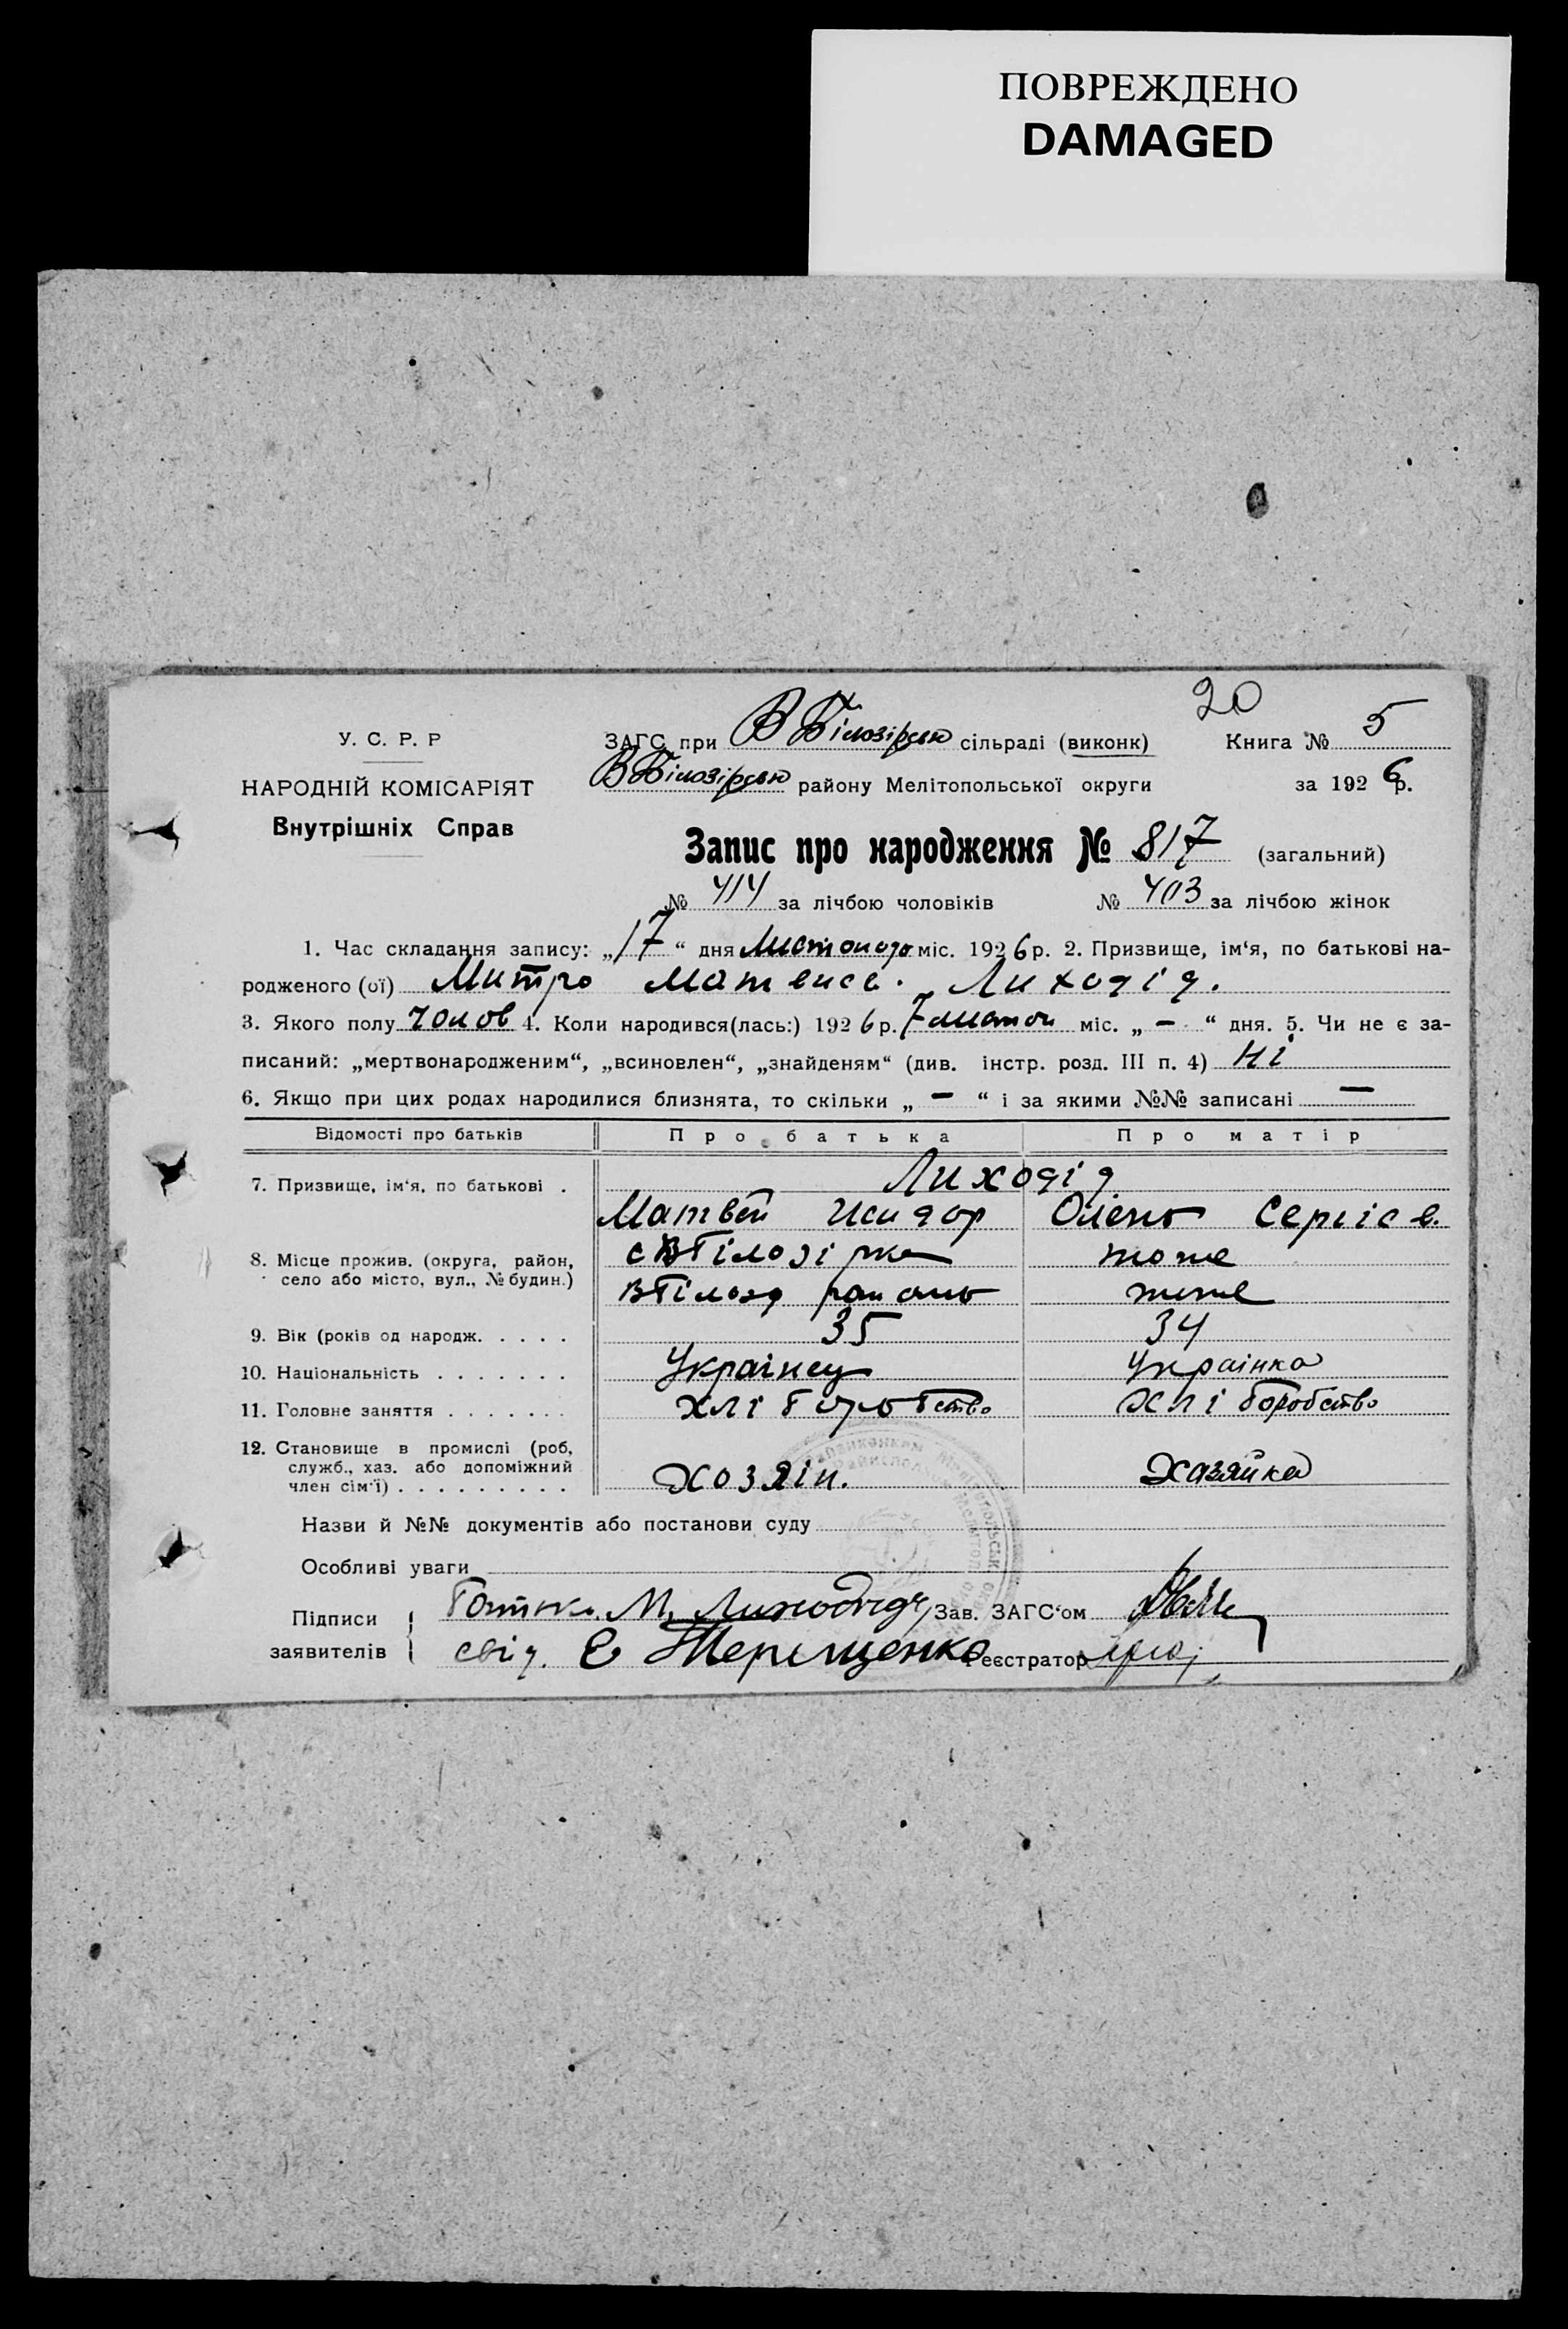 ПОВРЕЖДЕНО
DAMAGED
20
У. С. Р. Р
НАРОДНІЙ КОМІСАРІЯТ
Внутрішніх Справ
ЗАГС при В Білозірськ сільраді (виконк) Книга № 5
В Білозірськ району Мелітопольської округи за 1926 р.
Запис про народження № 817 (загальний)
№ 414 за лічбою чоловіків № 403 за лічбою жінок
1. Час складання запису: „17“ дня Листопада міс. 1926 р. 2. Призвище, ім‘я, по батькові на-
родженого (ої) Митро Матвієв. Лиходід.
3. Якого полу чолов 4. Коли народився(лась:) 1926 р. 7 листоп міс. „ — “ дня. 5. Чи не є за-
писаний: „мертвонародженим“, „всиновлен“, „знайденям“ (див. інстр. розд. III п. 4) Ні
6. Якщо при цих родах народилися близнята, то скільки „ — “ і за якими №№ записані —
Відомості про батьків Про батька Про матір
7. Призвище, ім‘я, по батькові . Лиходід
Матвей Исидор Олена Сергієв.
8. Місце прожив. (округа, район, село або місто, вул., № будин.) с ВБілозірка тоже
ВБілозд тоже
9. Вік (років од народж. . . . . 35 34
10. Національність . . . . . . . Украінец Украінка
11. Головне заняття . . . . . . . хліборобство хліборобство
12. Становище в промислі (роб, служб., хаз. або допоміжний член сім‘ї) . . . . . . . . . Хозяін. Хазяйка
Назви й №№ документів або постанови суду
Особливі уваги
Підписи заявителів Батько М. Лиходід Зав. ЗАГС‘ом
свід. Є Терещенко Реєстратор